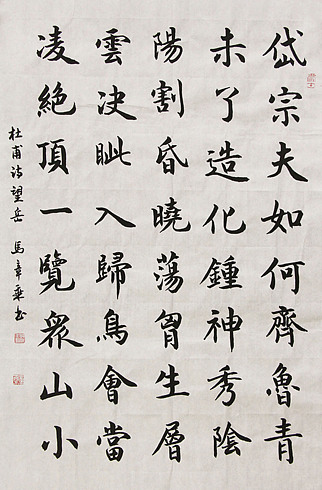 岱宗夫如何齊魯青
未了造化鍾神秀陰
陽割昏曉蕩胷生層
雲決眦入歸鳥會當
凌絕頂一覽眾山小
杜甫詩望岳 馬章乘书